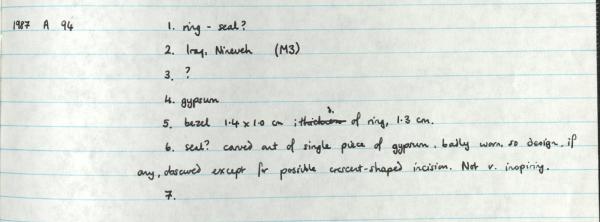 1987 A 94 1. ring - seal?
2. Iraq, Nineveh (M3)
3. ?
4. gypsum
5. bezel 1.4 x 1.0 cm ; thickness d. of ring, 1.3 cm.
6. seal? carved out of single piece of gypsum. badly worn, so design, if
any, obscured except for possible crescent-shaped incision. Not v. inspiring.
7.